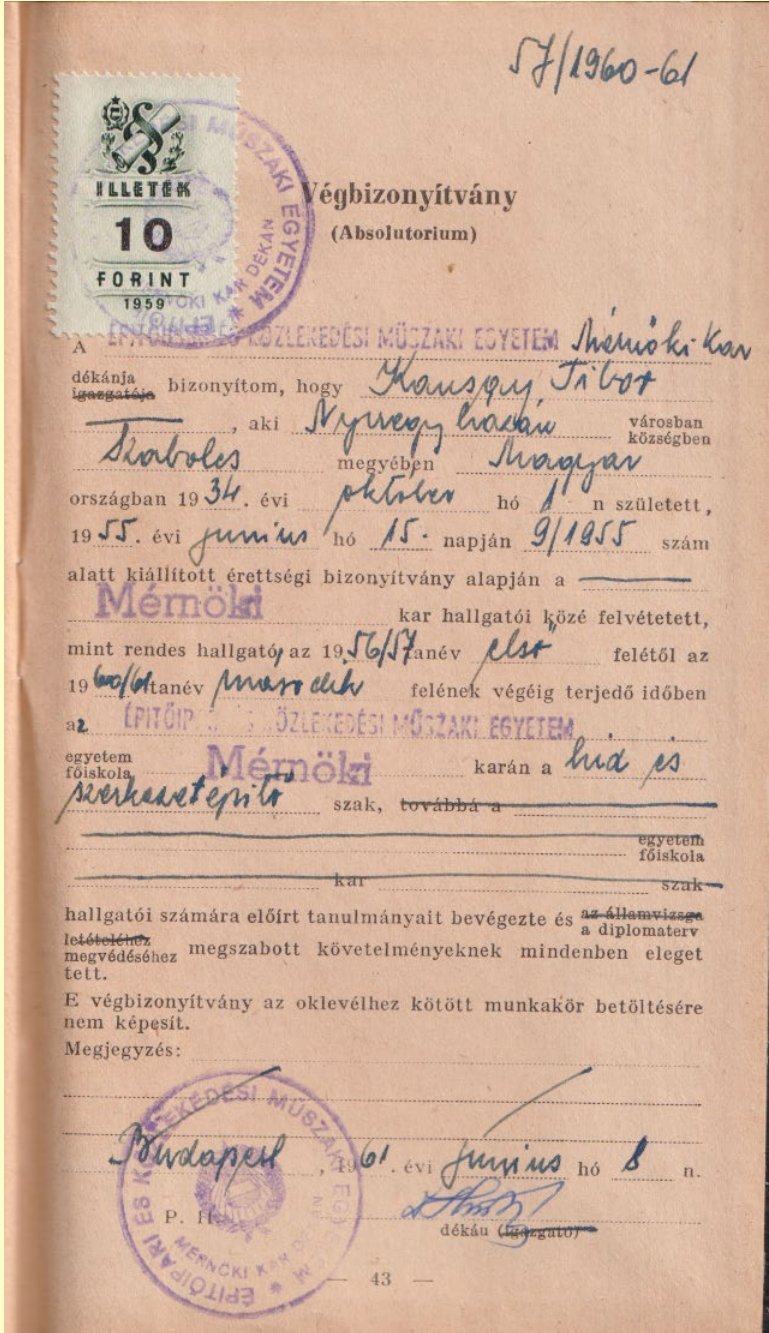 57/1960-61
ILLETÉK
10
FORINT
1959
Végbizonyítvány
(Absolutorium)
A ÉPITŐIPARI ÉS KÖZLEKEDÉSI MŰSZAKI EGYETEM Mérnöki Kar
dékánja
igazgatója bizonyítom, hogy Kausay Tibor
, aki Nyiregyházán városban
községben
Szabolcs megyében Magyar
országban 1934. évi október hó 1 n született,
1955. évi junius hó 15. napján 9/1955 szám
alatt kiállított érettségi bizonyítvány alapján a
Mérnöki kar hallgatói közé felvétetett,
mint rendes hallgató, az 1956/57 tanév első felétől az
1960/61 tanév második felének végéig terjedő időben
az ÉPITŐIP ÖZLEKEDÉSI MŰSZAKI EGYETEM
egyetem
főiskola Mérnöki karán a hid és
szerkezetépitő szak, továbbá a
egyetem
főiskola
kar szak
hallgatói számára előírt tanulmányait bevégezte és az államvizsga
a diplomaterv
letételéhez
megvédéséhez megszabott követelményeknek mindenben eleget
tett.
E végbizonyítvány az oklevélhez kötött munkakör betöltésére
nem képesít.
Megjegyzés:
Budapest, 1961. évi junius hó 8 n.
P. H.
dékáu (igazgató)
ÉPITŐIPARI ÉS KÖZLEKEDÉSI MŰSZAKI EGY
MÉRNÖKI KAR
— 43 —